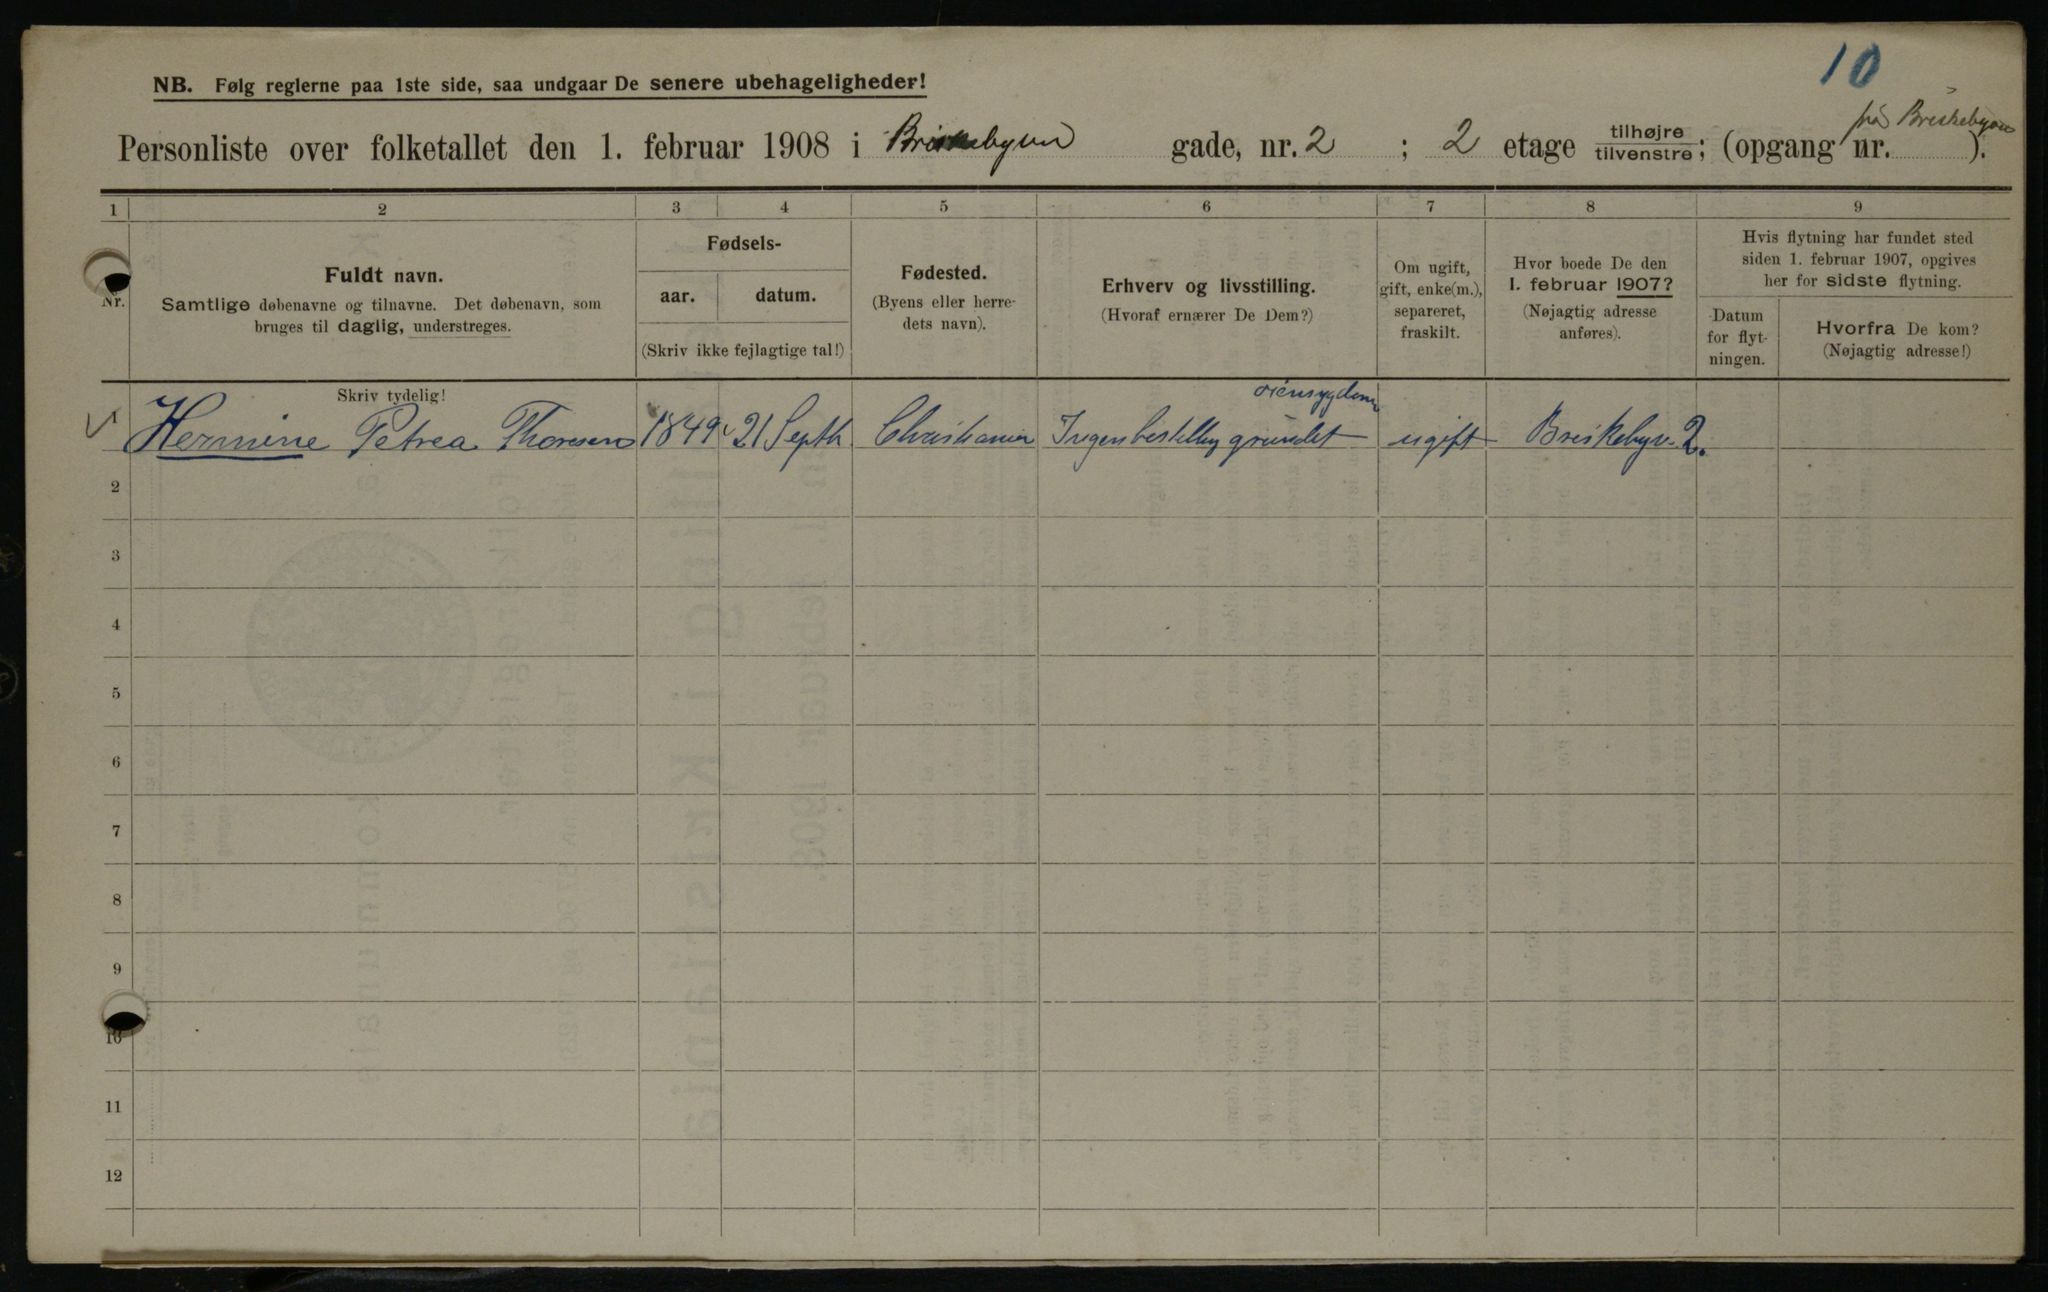 10
NB. Følg reglerne paa 1ste side, saa undgaar De senere ubehageligheder!
fra Briskebyvn
Personliste over folketallet den 1. februar 1908 i Briskebyvn gade, nr. 2 ; 2 etage tilhøjre/tilvenstre; (opgang nr. ).
1 2 3 4 5 6 7 8 9
Nr.
Fuldt navn.
Samtlige døbenavne og tilnavne. Det døbenavn, som
bruges til daglig, understreges.
Skriv tydelig!
Fødsels-
aar. datum.
(Skriv ikke fejlagtige tal!)
Fødested.
(Byens eller herre-
dets navn).
Erhverv og livsstilling.
(Hvoraf ernærer De Dem?)
Om ugift,
gift, enke(m.),
separeret,
fraskilt.
Hvor boede De den
1. februar 1907?
(Nøjagtig adresse
anføres).
Hvis flytning har fundet sted
siden 1. februar 1907, opgives
her for sidste flytning.
Datum
for flyt-
ningen.
Hvorfra De kom?
(Nøjagtig adresse!)
øiensygdom
1 Hermine Petrea Thoresen 1849 21 Septh Christiania Ingen bestilling grundet ugift Briskebyv. 2.
2
3
4
5
6
7
8
9
10
11
12